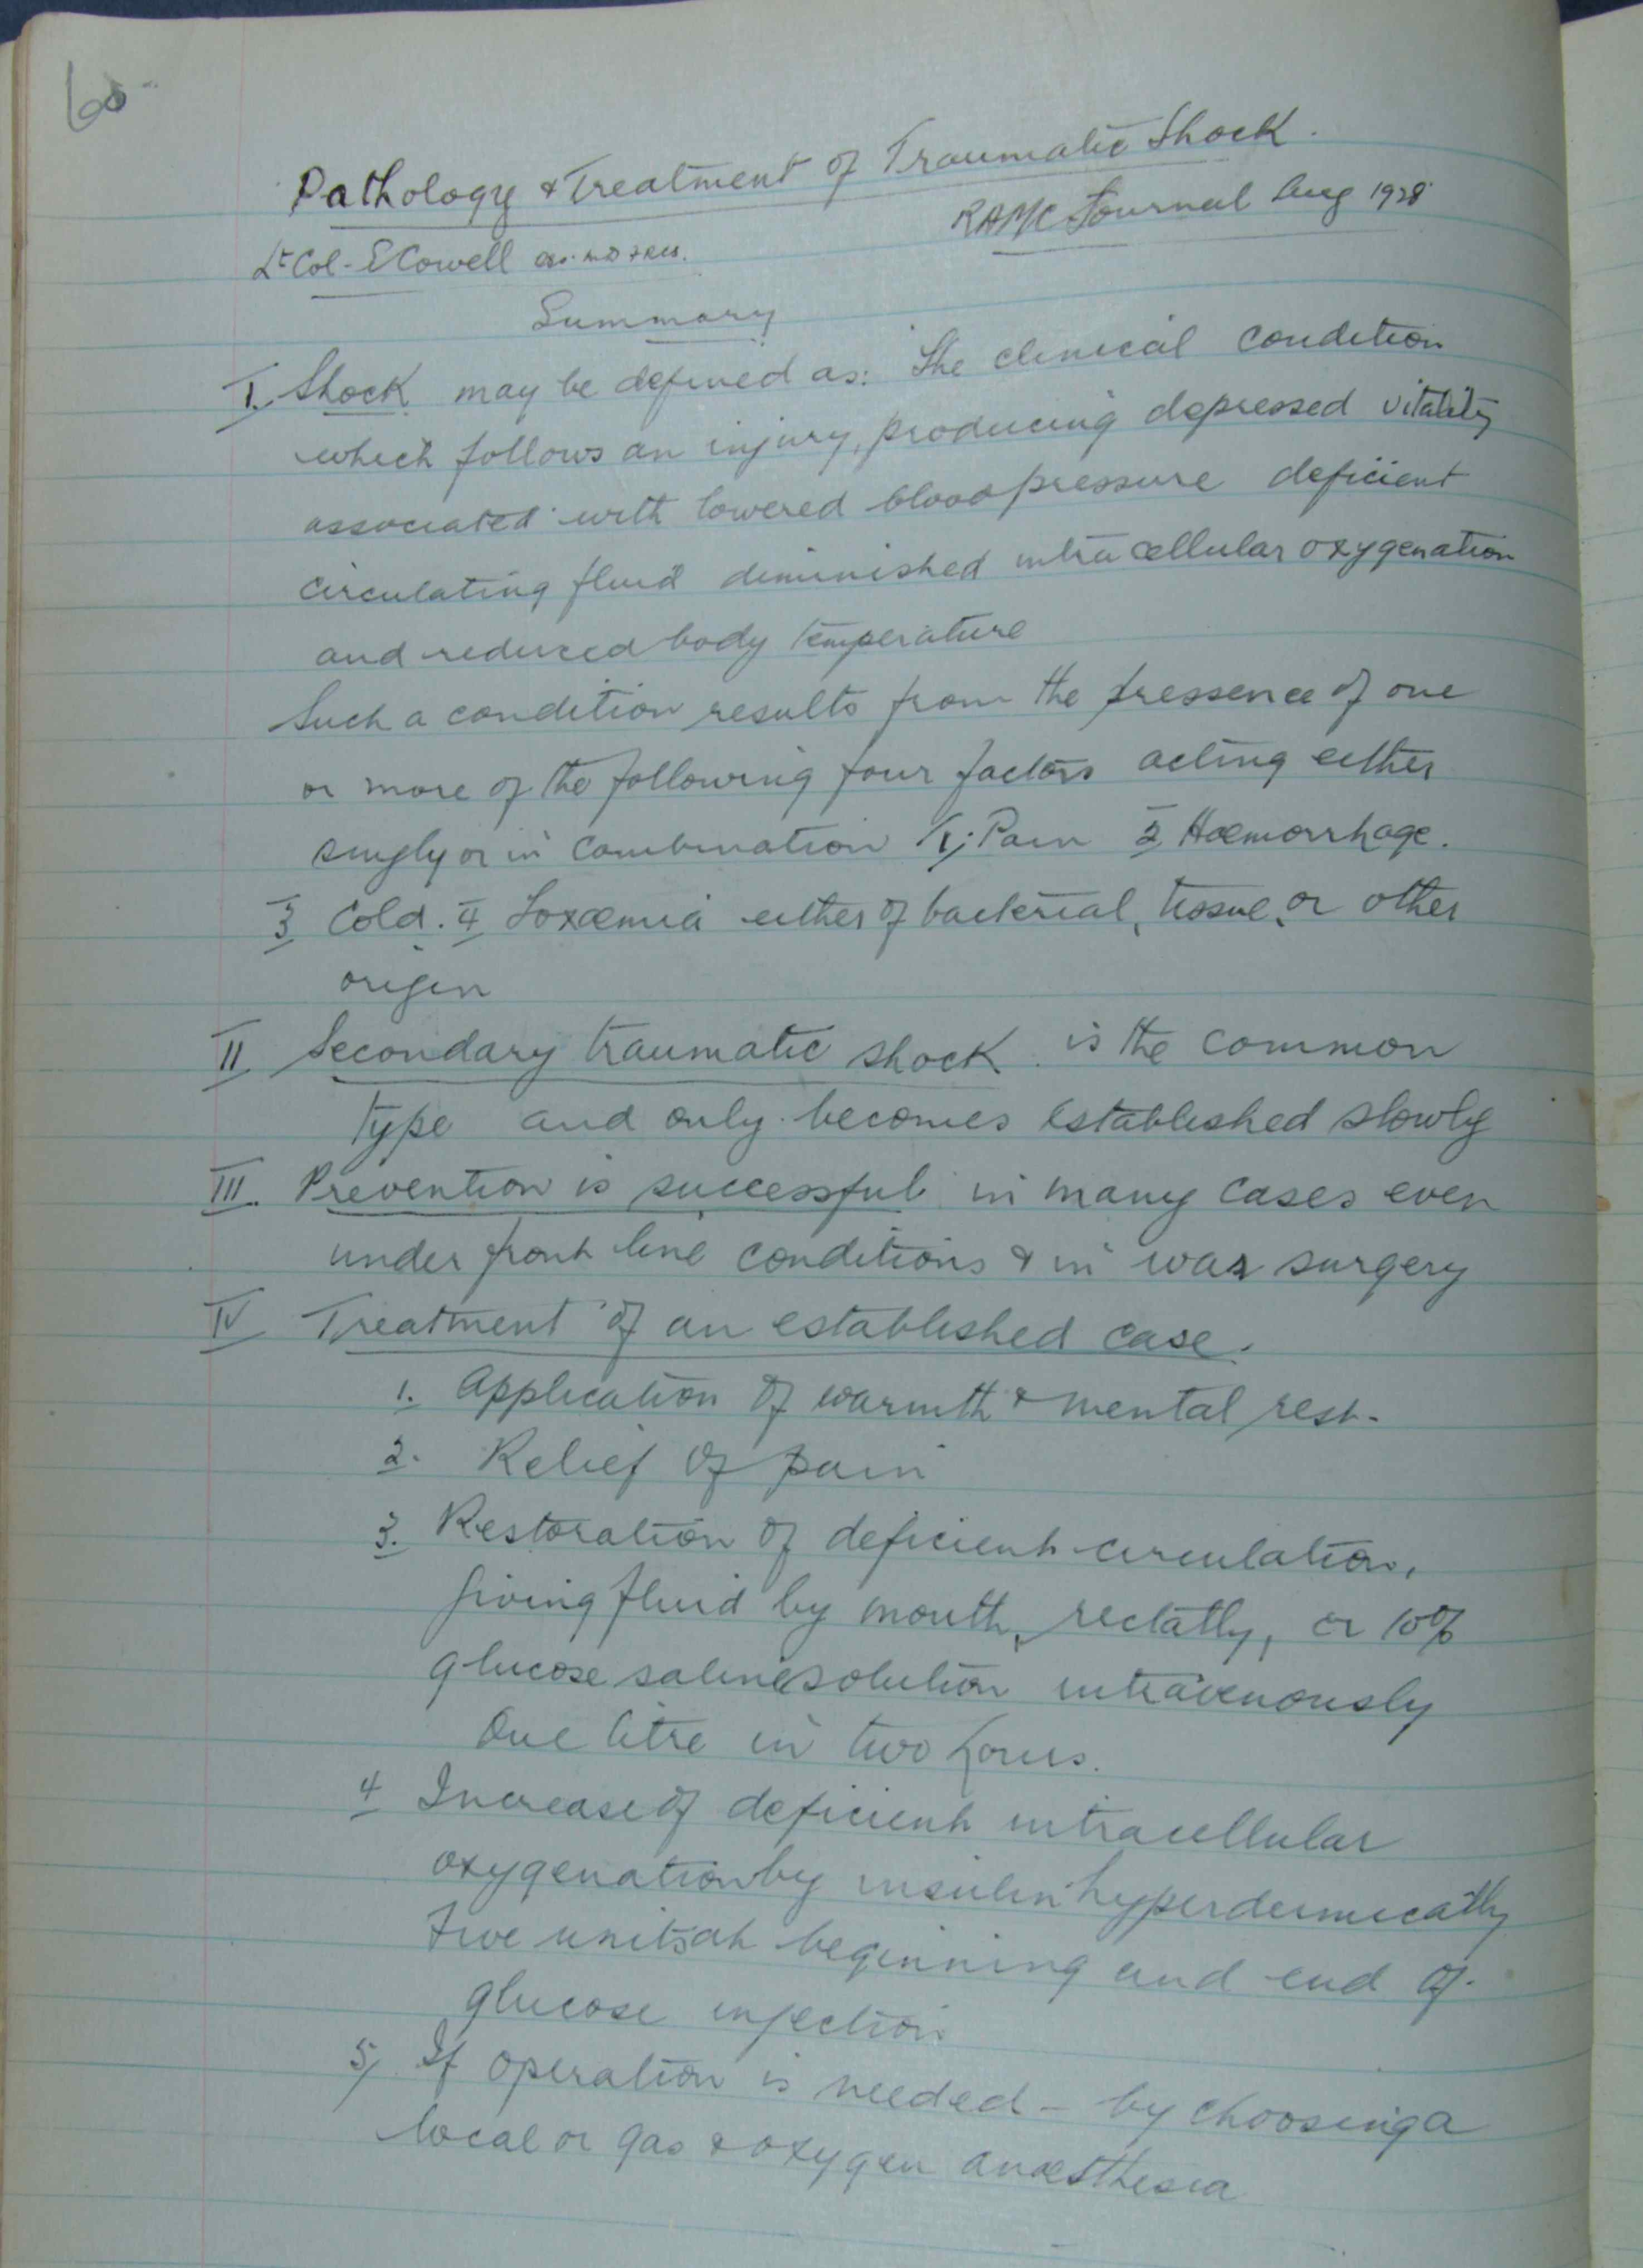 60
Pathology & Treatment of Traumatic Shock.
RAMC Journal Aug 1928
Lt Col - E Cowell
Summary
I. Shock may be defined as: The clinical condition
which follows an injury, producing depressed vitality
associated with lowered blood pressure deficient
circulating fluid diminished intracellular oxygenation
and reduced body temperature
Such a condition results from the pressence of one
or more of the following four factors acting either
singly or in combination 1; Pain 2 Haemorrhage.
3 Cold. 4 Toxaemia either of bacterial, tissue, or other
origin
II Secondary traumatic shock is the common
type and only becomes established slowly
III. Prevention is successful in many cases even
under front line conditions & in war surgery
IV Treatment of an established case.
1. Application of warmth & mental rest.
2. Relief of pain
3. Restoration of deficient circulation,
giving fluid by mouth, rectally, or 10%
glucose saline solution intravenously
One litre in two hours.
4 Increase of deficient intracellular
oxygenation by insulin hyperdermically
Five units at beginning and end of
glucose injection
5) If operation is needed - by choosing a
local or gas & oxygen anaesthesia